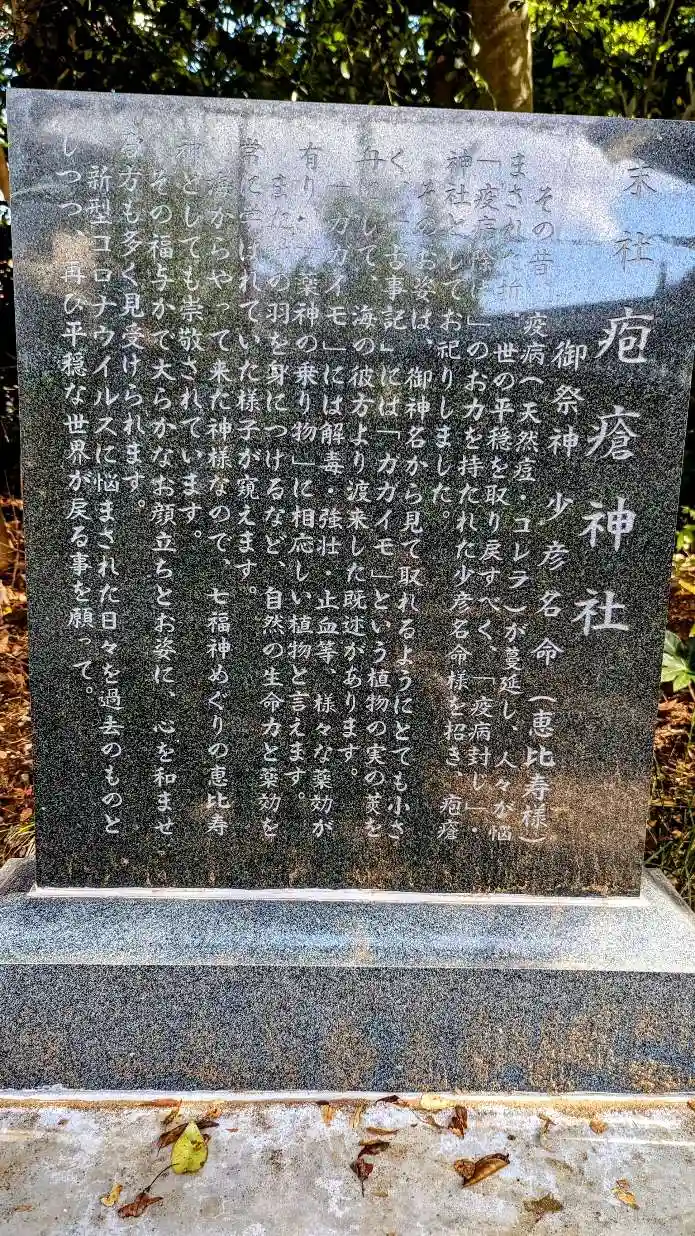 末社 疱瘡神社
御祭神 少彦名命(恵比寿様)
その昔、疫病(天然痘・コレラ)が蔓延し、人々が悩
まされた折、世の平穏を取り戻すべく、「疫病封じ」・
「疫病除け」のお力を持たれた少彦名命様を招き、疱瘡
神社としてお祀りしました。
そのお姿は、御神名から見て取れるようにとても小さ
く、「古事記」には「ガガイモ」という植物の実の莢を
舟にして、海の彼方より渡来した既述があります。
「ガガイモ」には解毒・強壮・止血等、様々な薬効が
有り、「薬神の乗り物」に相応しい植物と言えます。
まに の羽を身につけるなど、自然の生命力と薬効を
常に学ばれていた様子が窺えます。
海からやって来た神様なので、七福神めぐりの恵比寿
神としても崇敬されています。
その福与かで大らかなお顔立ちとお姿に、心を和ませ
る方も多く見受けられます。
新型コロナウイルスに悩まされた日々を過去のものと
しつつ、再び平穏な世界が戻る事を願って。